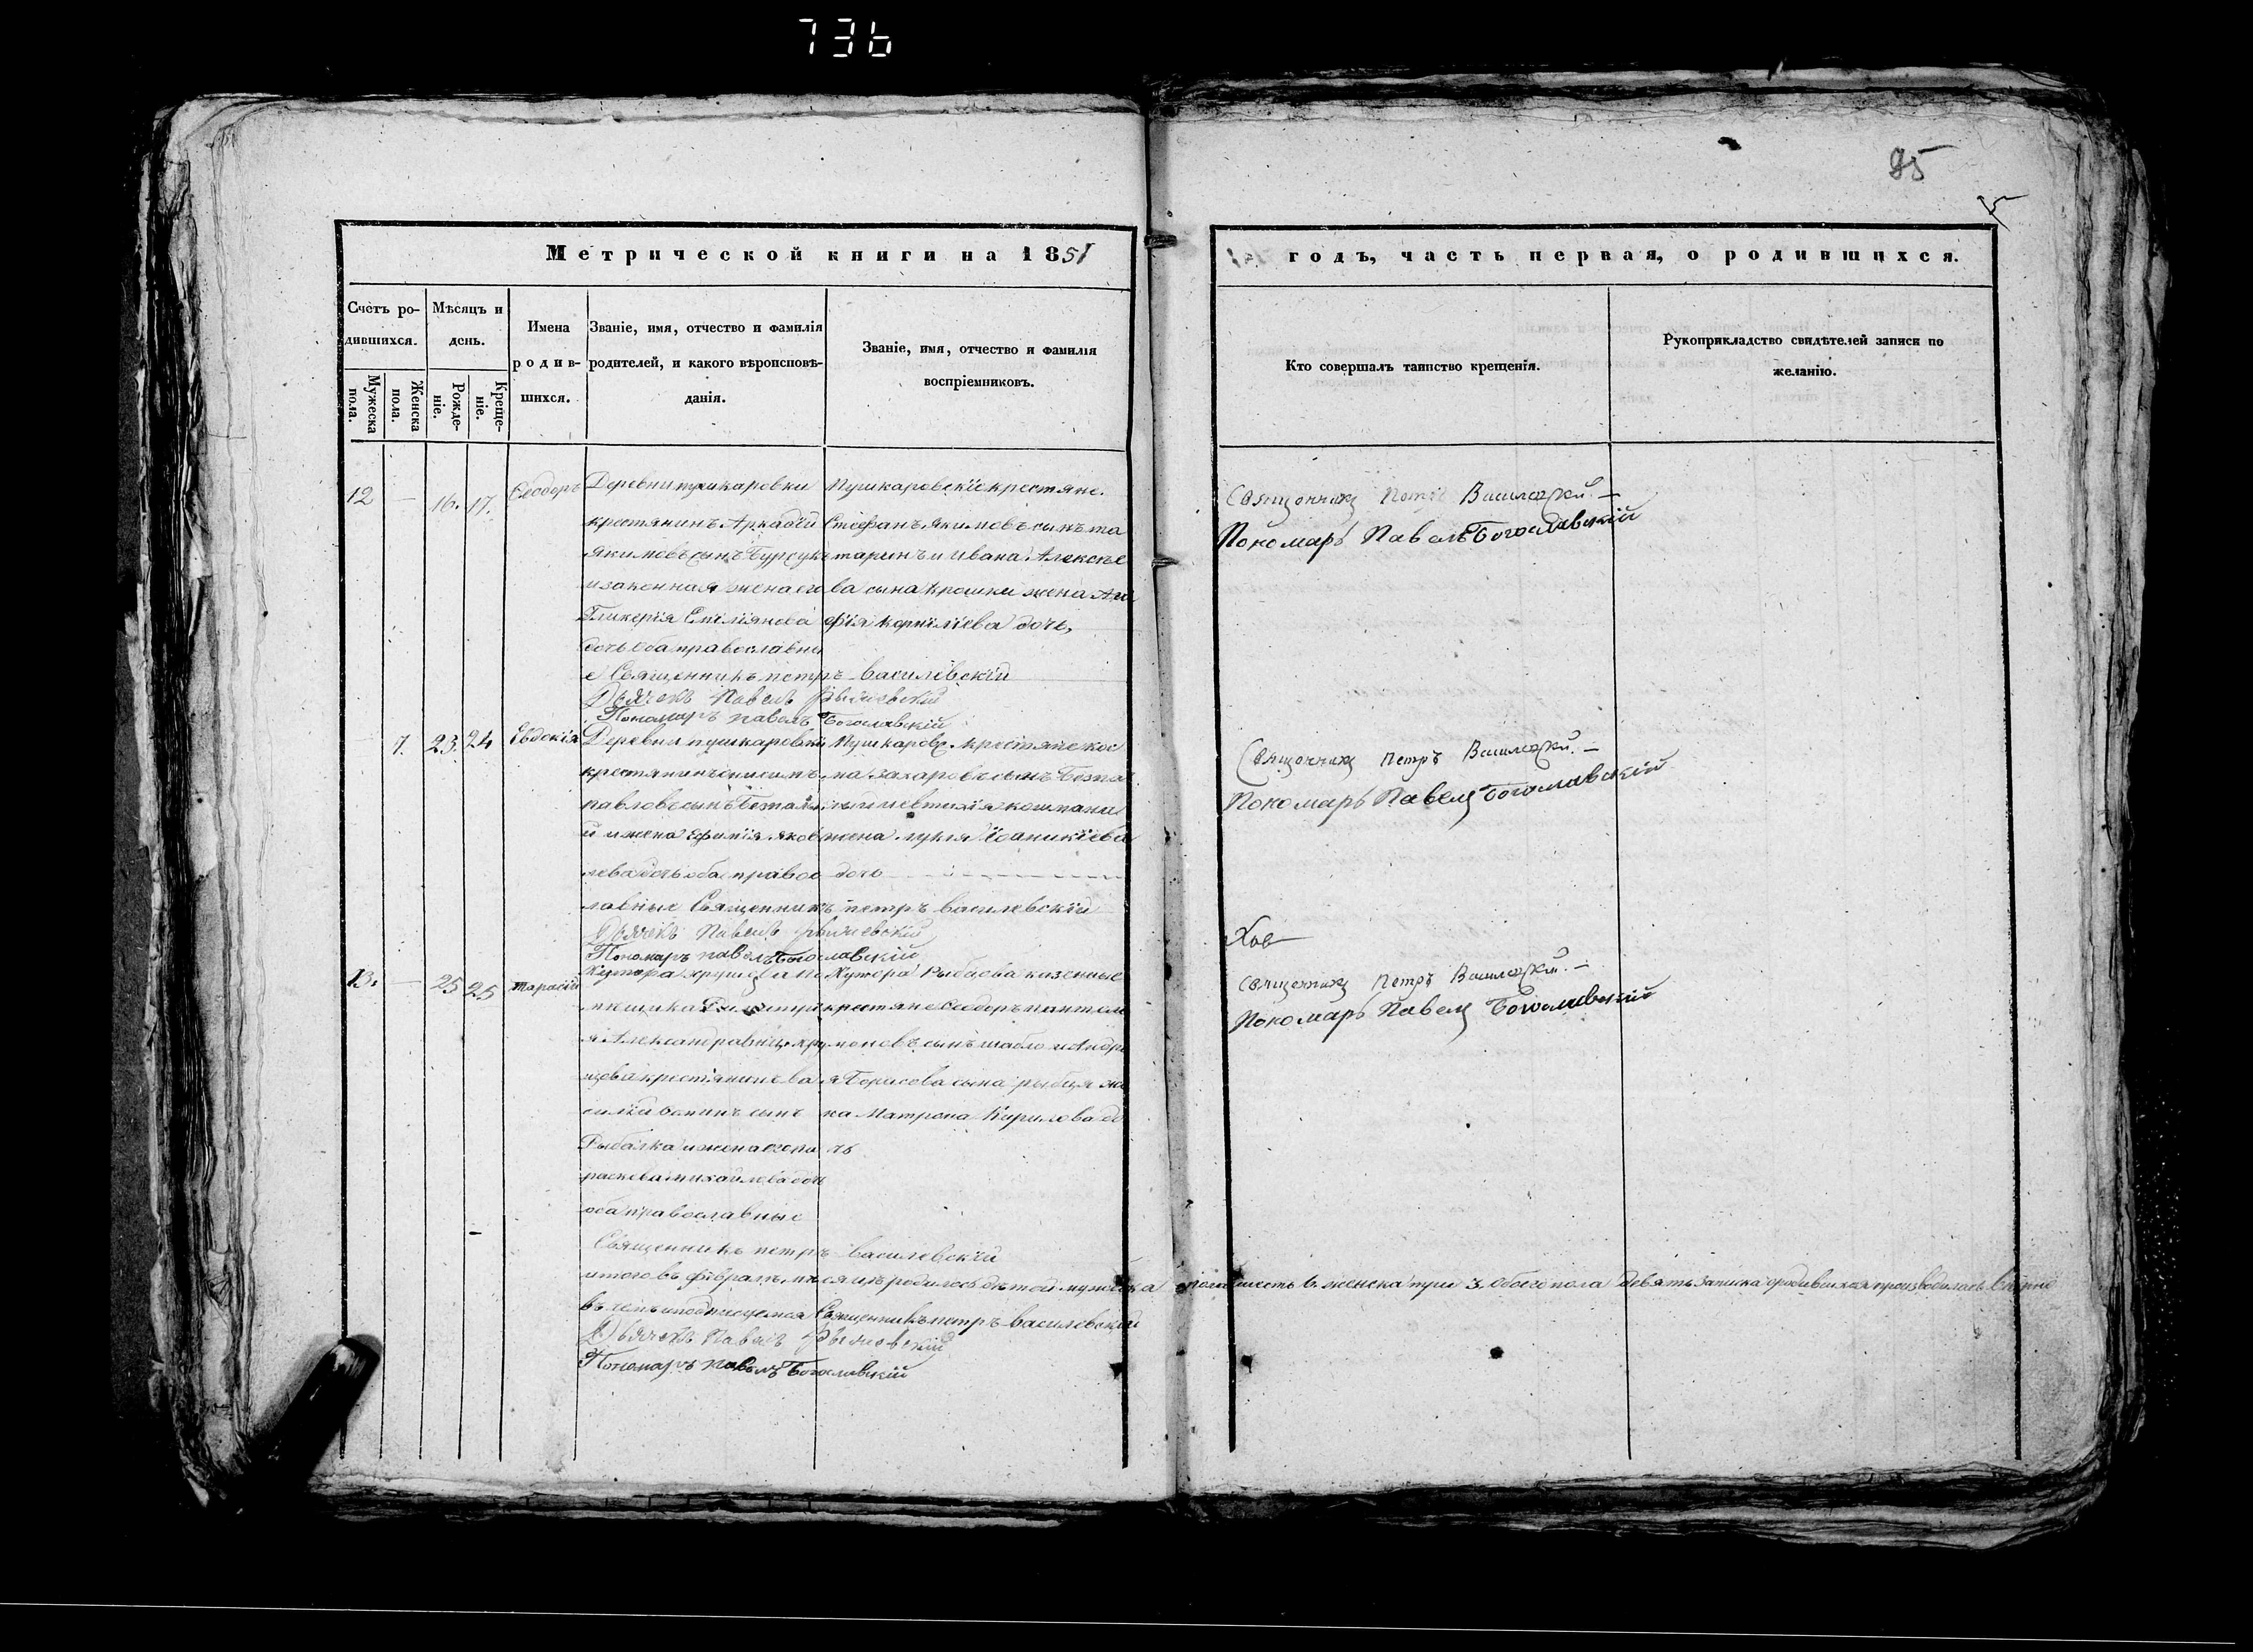 736
95
Метрической книги на 1851
годъ, часть первая, о родившихся.
Счетъ ро-
дившихся.
Мужеска
пола.
Женска
пола.
Мѣсяцъ и
день.
Рожде-
ніе.
Креще-
ніе.
Имена
родив-
шихся.
Званіе, имя, отчество и фамилія
родителей, и какого вѣроисповѣ-
данія.
Званіе, имя, отчество и фамилія
воспріемниковъ.
Кто совершалъ таинство крещенія.
Рукоприкладство свидѣтелей записи по
желанію.
12
16.
17.
Ѳеодоръ
Деревни пушкаровки
крестянинъ Аркадій
Якимовъ сынъ
и законная жена его
Гликерія Емілянова
дочь оба православны
е Священникъ петръ василевскій
Дьячекъ Павелъ
Пономаръ павелъ Богославскій
Пушкаровскіе крестяне
Стефанъ Якимовъ сынъ та
таринъ и Ивана Алексѣе
ва сына крошки жена Ага
фія Корнилиева дочь,
Священникъ Петръ Василевскій
Пономаръ Павелъ Богославскій
7.
23.
24
Евдокія
Деревни пушкаровки
павловъ сынъ
й и жена Ефимія яков
лева дочь оба правос
лавные Священникъ петръ василевскій
Дьячекъ Павелъ
Пономаръ павелъ Богославскій
Пушкаровс. крестяне кос
ма захаровъ сынъ
жена лукія Іоаникіева
дочь
Священникъ Петръ Василевскій
Пономаръ Павелъ Богославскій
13.
25
25
Тарасій
Хутора хрущева по
мѣщика Димитрі
я Александровича хру
щева крестянинъ ва
силій сынъ
Рыбалка и жена его па
раскева михайлова дочь
оба православные
Священникъ петръ василевскій
Хутора Рыбцова казенные
крестяне Ѳеодоръ пантели
моновъ сынъ шабло и Андре
я Борисова сына рыбця же
на Матрона Кирилова до
чь
Священникъ Петръ Василевскій
Пономаръ Павелъ Богославскій
итого въ февралѣ мѣсяцѣ родилось дѣтей мужеска пола шесть 6. женска три 3. обоего пола девять записка о родившихся производилась вѣрно
въ чемъ и подписуемся Священникъ петръ василевскій
Дьячекъ Павелъ
Пономаръ павелъ Богославскій